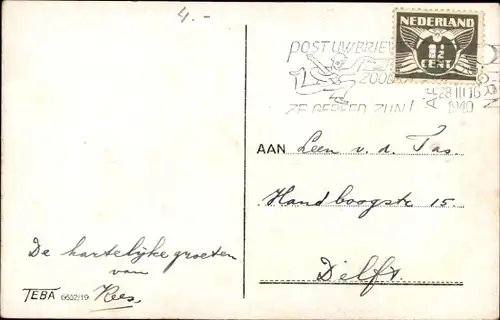 4.-
NEDERLAND
1½
CENT
POST UW BRIEVEN
ZOODRA
ZE GEREED ZIJN!
28 III 16
1940
AAN Leen v. d. Tas.
Handboogstr 15.
Delft.
De hartelijke groeten
van
Kees
TEBA 6652/19